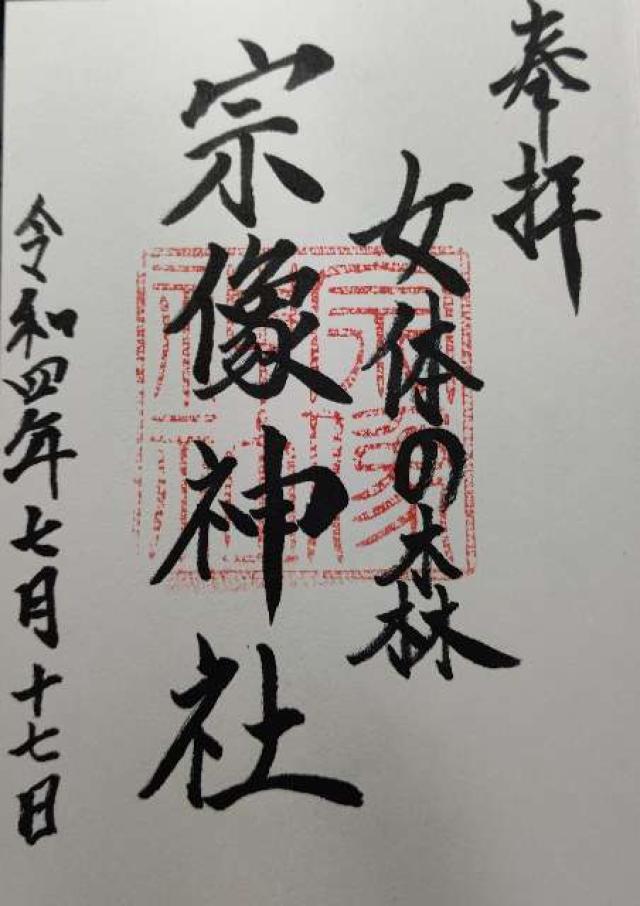 奉拝
女体の森
宗像神社
令和四年七月十七日
宗像
神社